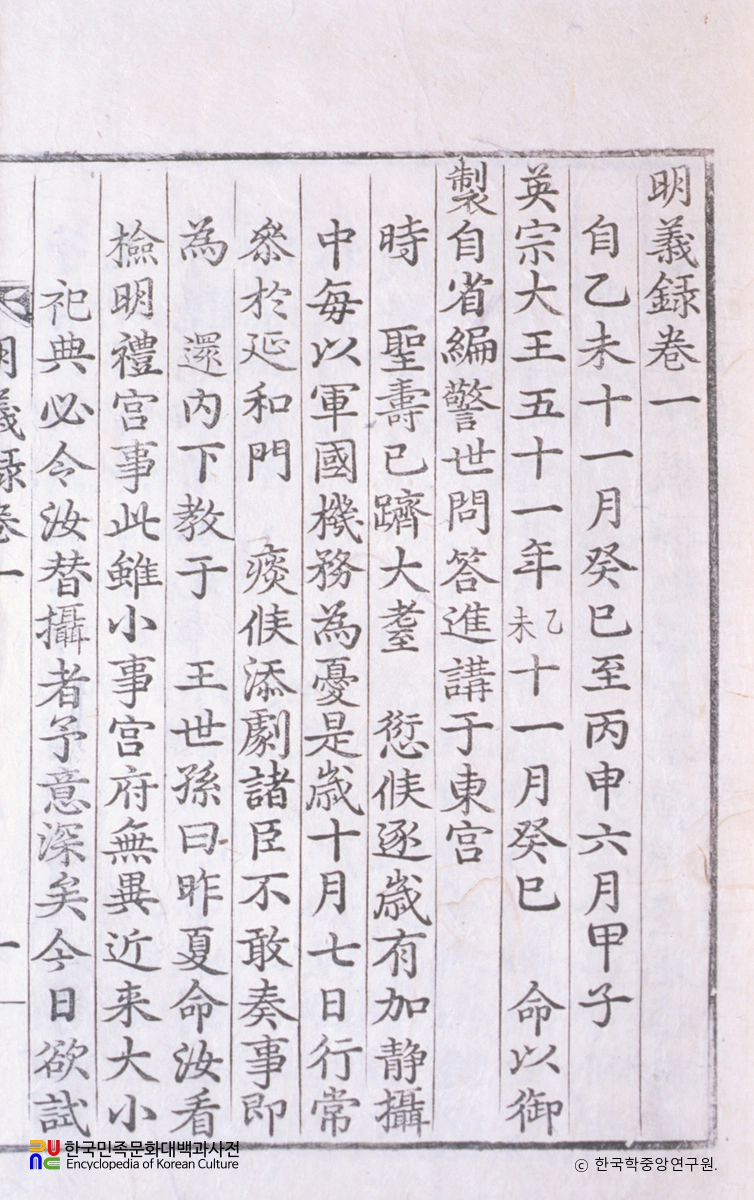 明義録卷一
自乙未十一月癸巳至丙申六月甲子
英宗大王五十一年乙未十一月癸巳 命以御
製自省編警世問答進講于東宮
時 聖壽已躋大耋 愆候逐歲有加静攝
中每以軍國機務為憂是歲十月七日行常
叅於延和門 痰候添劇諸臣不敢奏事即
為 還内下教于 王世孫曰昨夏命汝看
檢明禮宮事此雖小事宮府無異近来大小
祀典必令汝替攝者予意深矣今日欲試
明義録卷一
한국민족문화대백과사전
Encyclopedia of Korean Culture
© 한국학중앙연구원.